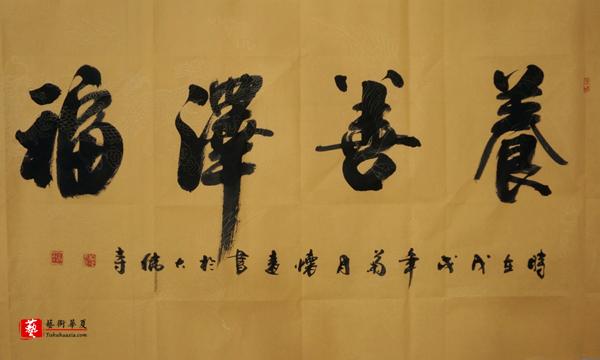 養善澤福
時在戊戌年菊月懷遠書於大佛寺
藝
藝術華夏
Yishuhuaxia.com